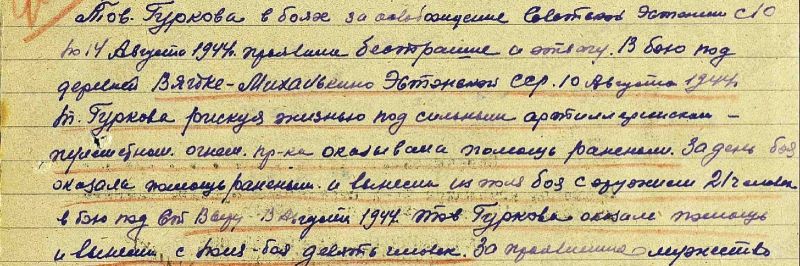 Тов. Гуркова в боях за освобождение Советской Эстонии с 10
по 14 Августа 1944г. проявила бесстрашие и отвагу. В бою под
деревней Вяйке-Михалькино Эстонской ССР. 10 Августа 1944г.
т. Гуркова рискуя жизнью под сильным артиллерийском-
пулеметном. огнем. пр-ка оказывала помощь раненым. За день боя
оказала помощь раненым. и вынесла из поля боя с оружием 21 человек
в бою под Августа 1944. Тов Гуркова оказала помощь
и вынесла с поля-боя девять человек. За проявленное мужество